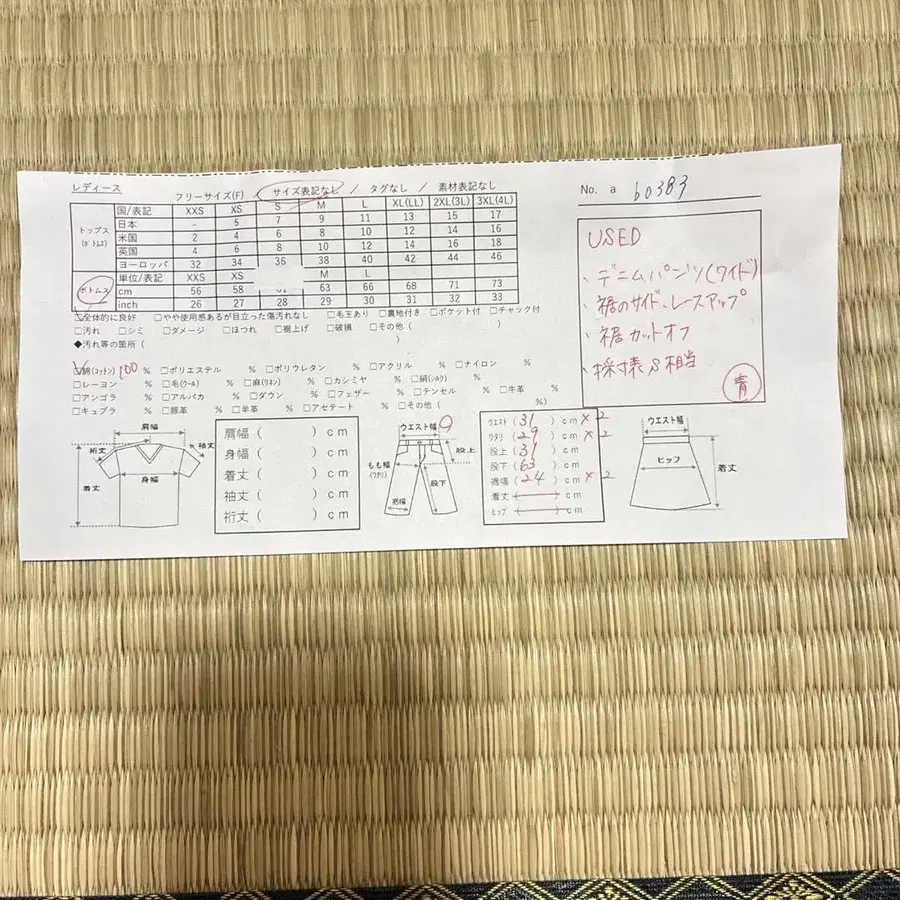 レディース
フリーサイズ(F) / サイズ表記なし / タグなし / 素材表記なし
No. a b0383
トップス
(ボトムス)
国/表記 XXS XS S M L XL(LL) 2XL(3L) 3XL(4L)
日本 - 5 7 9 11 13 15 17
米国 2 4 6 8 10 12 14 16
英国 4 6 8 10 12 14 16 18
ヨーロッパ 32 34 36 38 40 42 44 46
ボトムス
単位/表記 XXS XS M L
cm 56 58 61 63 66 68 71 73
inch 26 27 28 29 30 31 32 33
USED
・デニムパンツ(ワイド)
・裾のサイド、レースアップ
・裾カットオフ
・採寸様S相当
青
□全体的に良好 □やや使用感あるが目立った傷汚れなし □毛玉あり □裏地付き □ポケット付 □チャック付
□汚れ □シミ □ダメージ □ほつれ □裾上げ □破損 □その他 ( )
◆汚れ等の箇所 ( )
☑綿(コットン) 100 % □ポリエステル % □ポリウレタン % □アクリル % □ナイロン %
□レーヨン % □毛(ウール) % □麻(リネン) % □カシミヤ % □絹(シルク) %
□アンゴラ % □アルパカ % □ダウン % □フェザー % □テンセル % □牛革 %
□キュプラ % □豚革 % □羊革 % □アセテート % □その他 ( %)
肩幅
裄丈
袖丈
着丈
身幅
肩幅 ( ) cm
身幅 ( ) cm
着丈 ( ) cm
袖丈 ( ) cm
裄丈 ( ) cm
ウエスト幅
股上
もも幅
(ワタリ)
股下
裾幅
ウエスト (31) cm×2
ワタリ (29) cm×2
股上 (31) cm
股下 (63) cm
裾幅 (24) cm×2
着丈 ( ) cm
ヒップ ( ) cm
ウエスト幅
ヒップ
着丈